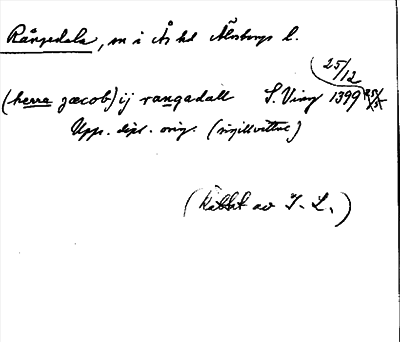 Rångedala, sn i Ås hd Älvsborgs l.
25/12
(herra jacob) ij rangadall S. Ving 1399 25/3
Upps. dipl. orig. (sigillvittne)
(Rättat av I. L.)